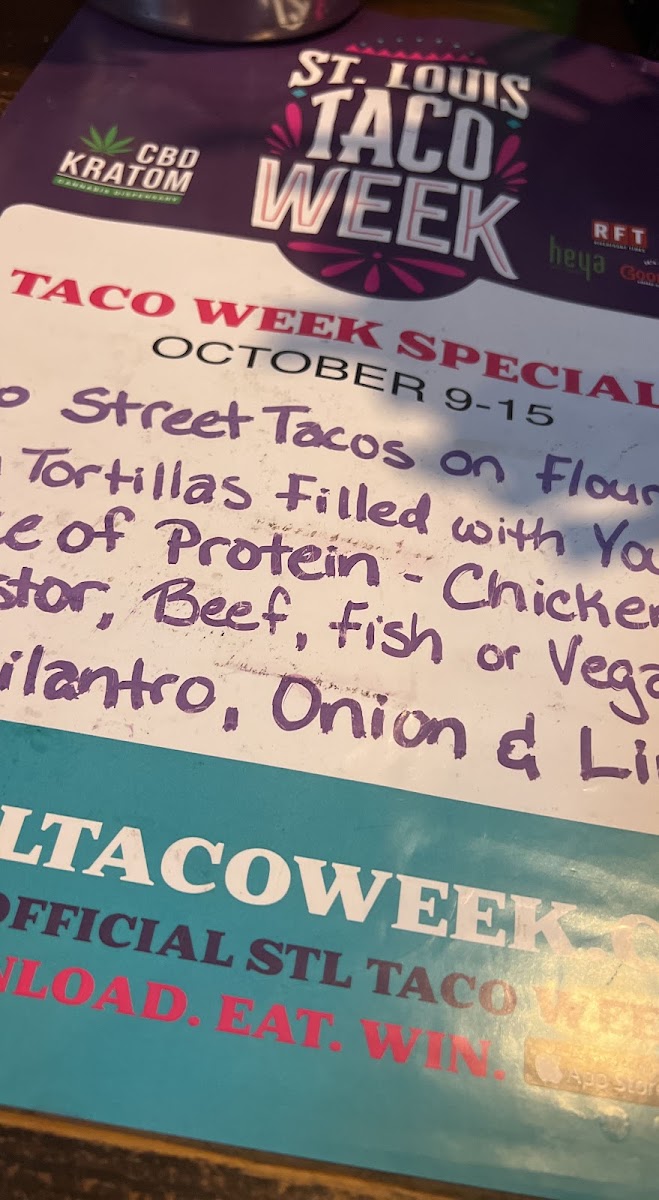 ST. LOUIS
TACO
WEEK
CBD
KRATOM
CANNABIS DISPENSARY
RFT
heya
TACO WEEK SPECIAL
OCTOBER 9-15
o Street Tacos on Flour
Tortillas Filled with You
ce of Protein - Chicken
stor, Beef, Fish or Vega
ilantro, Onion & Li
LTACOWEEK.C
OFFICIAL STL TACO WEE
NLOAD. EAT. WIN.
App Store